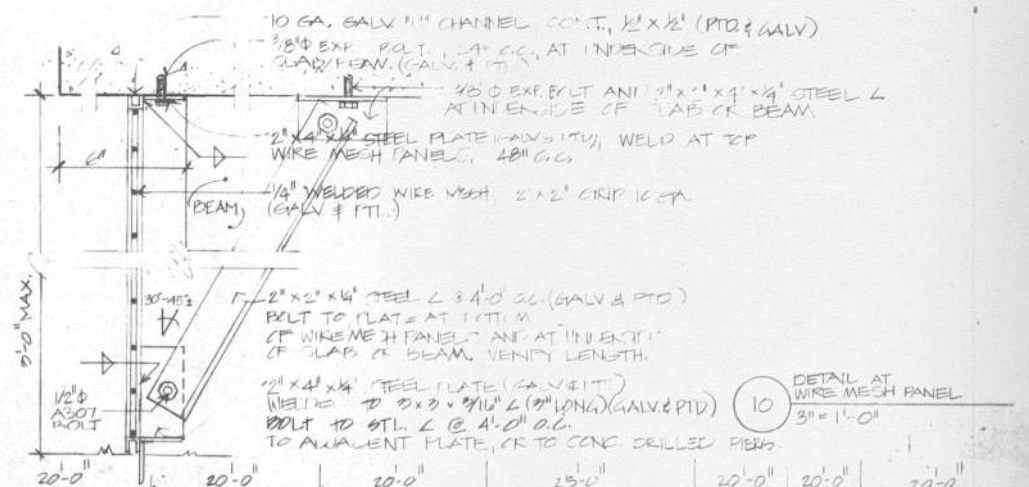 10 GA. GALV "U" CHANNEL, CONT., 1/2" x 1/2" (PTD. & GALV)
3/8"Φ EXP. BOLT, 24" O.C., AT UNDERSIDE OF
SLAB/BEAM. (GALV. &
EXP. BOLT AND STEEL L
AT UNDERSIDE OF SLAB OR BEAM
2" x 4" x 1/4" STEEL PLATE (GALV & PTD), WELD AT TOP
WIRE MESH PANELS, 48" O.C.
6"
BEAM
1/4" WELDED WIRE MESH, 2" x 2" GRID 16 GA
(GALV & PTD.)
3'-0" MAX.
30°-45°±
2" x 2" x 1/4" STEEL L @ 4'-0" O.C. (GALV & PTD.)
BOLT TO PLATE AT BOTTOM
OF WIRE MESH PANELS AND AT UNDERSIDE
OF SLAB OR BEAM. VERIFY LENGTH.
1/2"Φ
A307
BOLT
2" x 4" x 1/4" STEEL PLATE (GALV &
WELDED TO 3 x 3 x 3/16" L (3" LONG) (GALV. & PTD)
BOLT TO STL. L @ 4'-0" O.C.
TO ADJACENT PLATE, OR TO CONC. DRILLED PIERS.
10
DETAIL AT
WIRE MESH PANEL
3" = 1'-0"
20'-0" 20'-0" 20'-0" 25'-0" 20'-0" 20'-0" 20'-0"